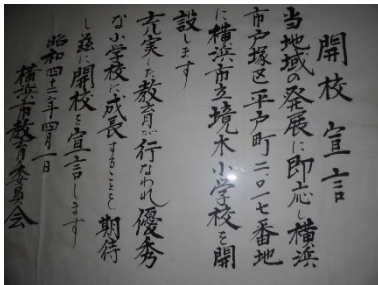 開校宣言
当地域の発展に即応し横浜
市戸塚区平戸町二、〇一七番地
に横浜市立境木小学校を開
設します
充実した教育が行なわれ優秀
な小学校に成長することを期待
し茲に開校を宣言します
昭和四十三年四月一日
横浜市教育委員会